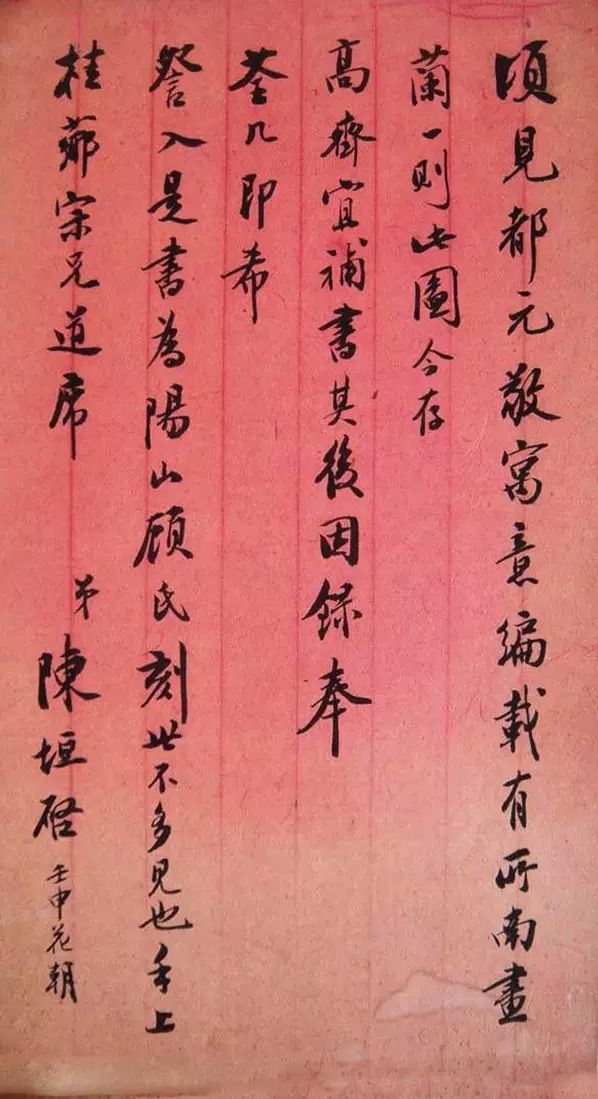 頃見都元敬寓意編載有所南畫
蘭一則此圖今存
高齋宜補書其後因録奉
荃几即希
詧入是書為陽山顧氏刻世不多見也手上
桂薌宗兄道席
弟陳垣啓 壬申花朝